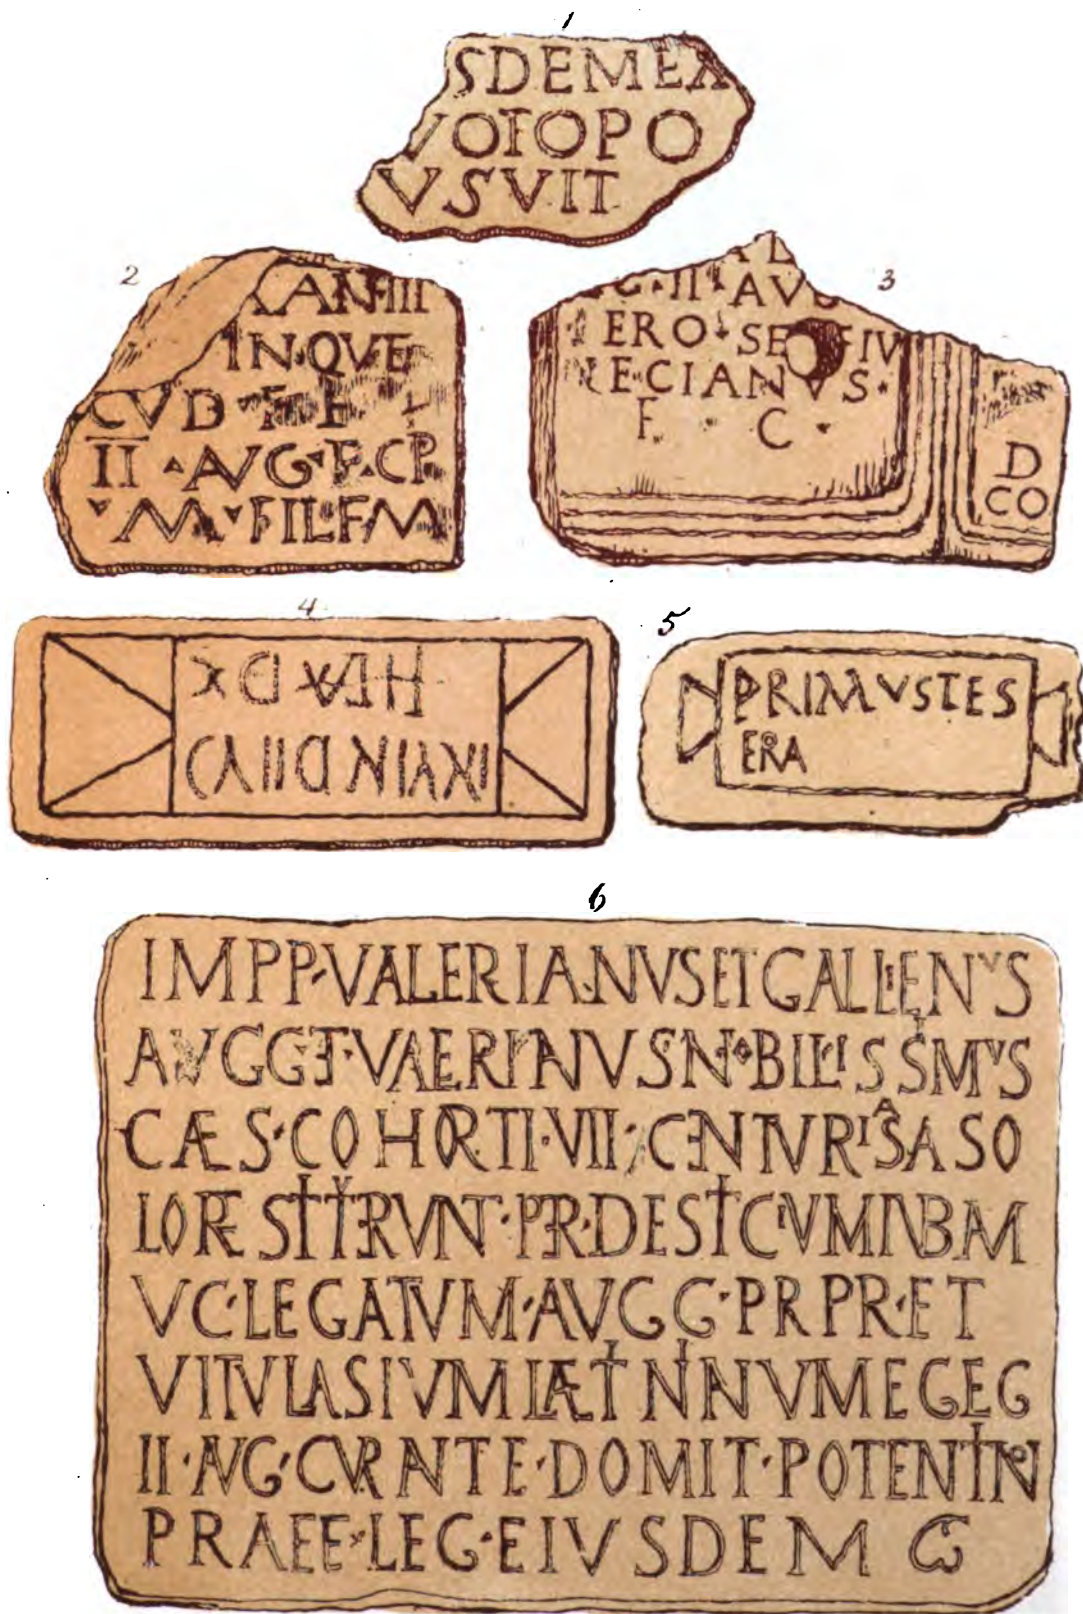 1
SDEMEX
VOTOPO
VSVIT
2
XAN·III
IN·QVE
CVD
II·AVG·F·CP
M·FIL·F·M
3
G·II·AVG
ERO·SE FIV
ECIANVS·
F. C.
D
CO
4
5
PRIMVSTES
ERA
6
IMPP·VALERIANVSETGALLIENVS
AVGG·ET·VALERIANVSNOBILISSIMVS
CÆS·COHORTI·VII·CENTVRIASASO
LORESTITVERVNT·PER·DESTICIVMIVBAM
VC·LEGATVM·AVGG·PRPR·ET
VITVLASIVMLÆTINIANVMEGEG
II·AVG·CVRANTE·DOMIT·POTENTINO
PRAEE·LEG·EIVSDEM